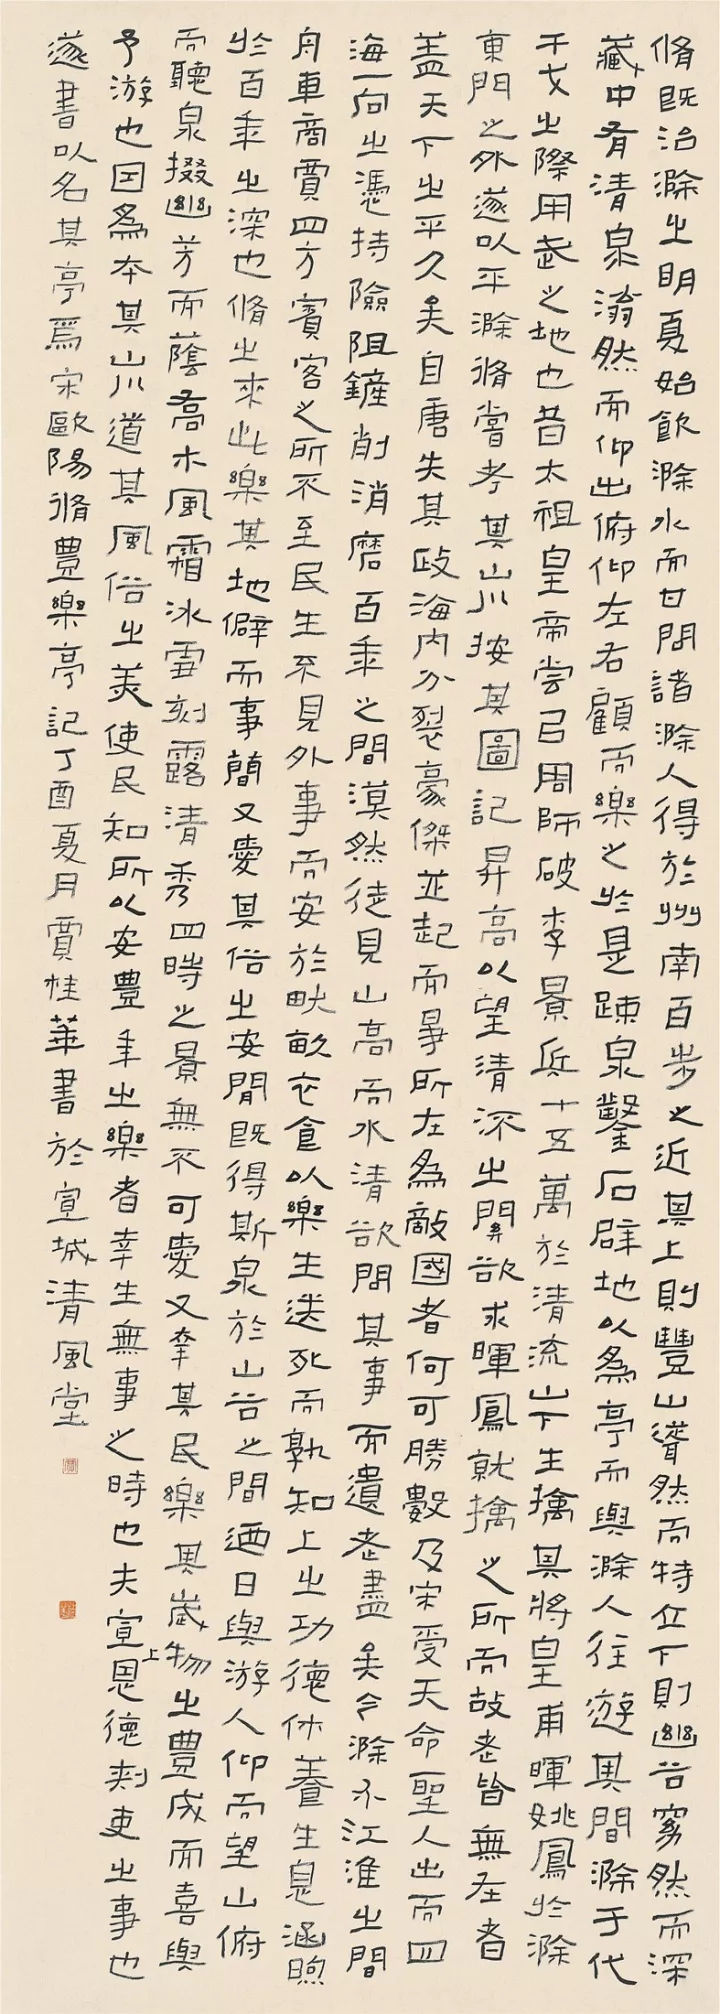 脩既治滁之明夏始飲滁水而甘問諸滁人得於州南百步之近其上則豐山聳然而特立下則幽谷窈然而深
藏中有清泉滃然而仰出俯仰左右顧而樂之於是疎泉鑿石辟地以為亭而與滁人往遊其間滁于代
干戈之際用武之地也昔太祖皇帝嘗以周師破李景兵十五萬於清流山下生擒其將皇甫暉姚鳳於滁
東門之外遂以平滁脩嘗考其山川按其圖記昇高以望清流之關欲求暉鳳就擒之所而故老皆無在者
盖天下之平久矣自唐失其政海内分裂豪傑並起而爭所在為敵國者何可勝數及宋受天命聖人出而四
海一向之憑恃險阻鏟削消磨百年之間漠然徒見山高而水清欲問其事而遺老盡矣今滁介江淮之間
舟車商賈四方賓客之所不至民生不見外事而安於畎畝衣食以樂生送死而孰知上之功德休養生息涵煦
於百年之深也脩之來此樂其地僻而事簡又愛其俗之安閒既得斯泉於山谷之間迺日與游人仰而望山俯
而聽泉掇幽芳而蔭喬木風霜冰雪刻露清秀四時之景無不可愛又幸其民樂其歲物之豐成而喜與
予游也因為本其山川道其風俗之美使民知所以安豐年之樂者幸生無事之時也夫宣上恩德刺吏之事也
遂書以名其亭焉宋歐陽脩豐樂亭記丁酉夏月賈桂華書於宣城清風堂